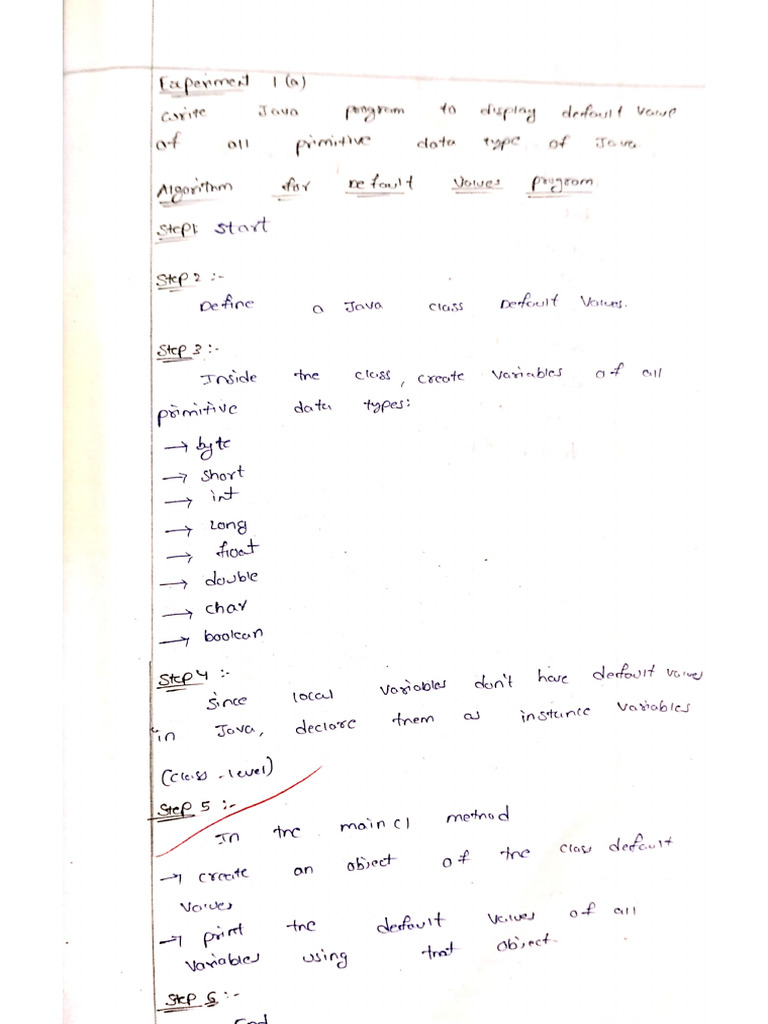 Experiment 1(a)
Write Java program to display default value
of all primitive data type of Java
Algorithm for Default Values program
Step1: Start
Step 2 :-
Define a Java class Default Values.
Step 3 :-
Inside the class, create variables of all
primitive data types:
→ byte
→ short
→ int
→ Long
→ float
→ double
→ char
→ boolean
Step 4 :-
Since local variables don't have default values
in Java, declare them as instance variables
(class-level)
Step 5 :-
In the main() method
→ create an object of the class default
values
→ print the default values of all
variables using that object.
Step 6 :-
End